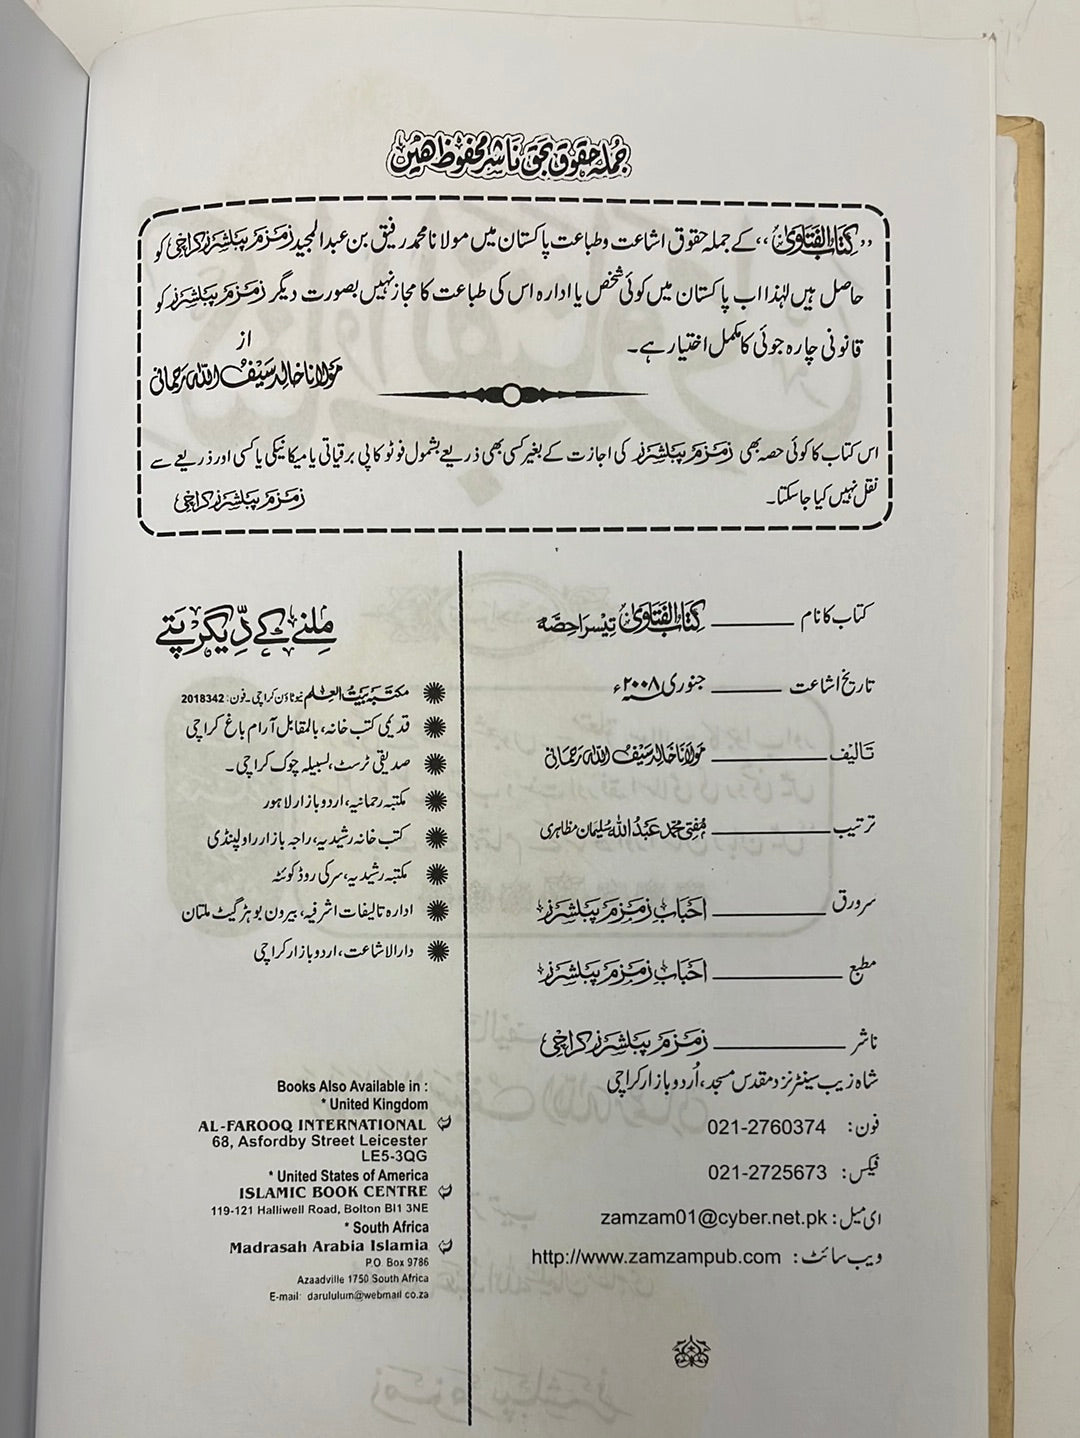 جملہ حقوق بحق ناشر محفوظ ھیں
”کتاب الفتاویٰ“ کے جملہ حقوق اشاعت و طباعت پاکستان میں مولانا محمد رفیق بن عبدالمجید زمزم پبلشرز کراچی کو
حاصل ہیں لہٰذا اب پاکستان میں کوئی شخص یا ادارہ اس کی طباعت کا مجاز نہیں بصورت دیگر زمزم پبلشرز کو
قانونی چارہ جوئی کا مکمل اختیار ہے۔
از
مولانا خالد سیف اللہ رحمانی
اس کتاب کا کوئی حصہ بھی زمزم پبلشرز کی اجازت کے بغیر کسی بھی ذریعے بشمول فوٹو کاپی برقیاتی یا میکانیکی یا کسی اور ذریعے سے
نقل نہیں کیا جا سکتا۔
زمزم پبلشرز کراچی
کتاب کا نام ـــــــــ کتاب الفتاویٰ تیسرا حصّہ
تاریخ اشاعت ـــــــــ جنوری ۲۰۰۸ء
تالیف ـــــــــ مولانا خالد سیف اللہ رحمانی
ترتیب ـــــــــ مفتی محمد عبداللہ سلیمان مظاہری
سرورق ـــــــــ احباب زمزم پبلشرز
مطبع ـــــــــ احباب زمزم پبلشرز
ناشر ـــــــــ زمزم پبلشرز کراچی
شاہ زیب سینٹر نزد مقدس مسجد، اُردو بازار کراچی
فون: 021-2760374
فیکس: 021-2725673
ای میل: zamzam01@cyber.net.pk
ویب سائٹ: http://www.zamzampub.com
ملنے کے دیگر پتے
مکتبہ بیت العلم نیو ٹاؤن کراچی۔ فون: 2018342
قدیمی کتب خانہ، بالمقابل آرام باغ کراچی
صدیقی ٹرسٹ، لسبیلہ چوک کراچی۔
مکتبہ رحمانیہ، اردو بازار لاہور
کتب خانہ رشیدیہ، راجہ بازار راولپنڈی
مکتبہ رشیدیہ، سرکی روڈ کوئٹہ
ادارہ تالیفات اشرفیہ، بیرون بوہڑ گیٹ ملتان
دارالاشاعت، اردو بازار کراچی
Books Also Available in :
* United Kingdom
AL-FAROOQ INTERNATIONAL
68, Asfordby Street Leicester
LE5-3QG
* United States of America
ISLAMIC BOOK CENTRE
119-121 Halliwell Road, Bolton BI1 3NE
* South Africa
Madrasah Arabia Islamia
P.O. Box 9786
Azaadville 1750 South Africa
E-mail: darululum@webmail.co.za